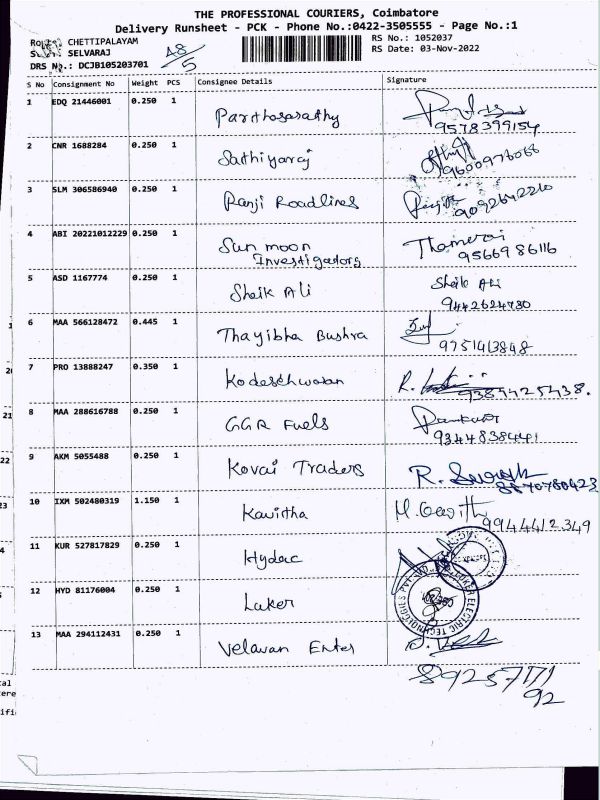 THE PROFESSIONAL COURIERS, Coimbatore
Delivery Runsheet - PCK - Phone No.:0422-3505555 - Page No.:1
CHETTIPALAYAM
RS No.: 1052037
SELVARAJ
48/5
RS Date: 03-Nov-2022
DRS No.: DCJB105203701
S No Consignment No Weight PCS Consignee Details Signature
1 EDQ 21446001 0.250 1 Parthasarathy
9578399154
2 CNR 1688284 0.250 1 Sathiyaraj
3 SLM 306586940 0.250 1 Ranji Roadlines
9092642210
4 ABI 20221012229 0.250 1 Sun moon
Investigators
9566986116
5 ASD 1167774 0.250 1 Sheik Ali Sheik Ali
9442624730
6 MAA 566128472 0.445 1 Thayibha Bushra
9751413848
7 PRO 13888247 0.350 1 Kodeeshwaran
9384425438.
8 MAA 288616788 0.250 1 GGR Fuels
9344838441
9 AKM 5055488 0.250 1 Kovai Traders
8870760423
10 IXM 502480319 1.150 1 Kavitha
9944412349
11 KUR 527817829 0.250 1 Hydac
12 HYD 81176004 0.250 1 Laker
13 MAA 294112431 0.250 1 Velavan Enter
89257171
92